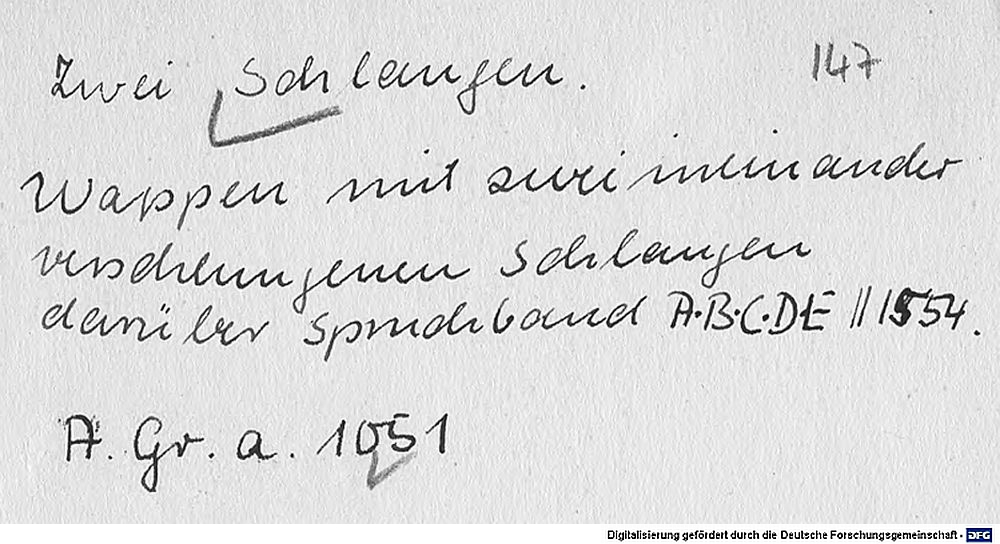 Zwei Schlangen. 147
Wappen mit zwei ineinander
verschlungenen Schlangen
darüber Spruchband A·B·C·D·E || 1554.
A. Gr. a. 1051
Digitalisierung gefördert durch die Deutsche Forschungsgemeinschaft - DFG